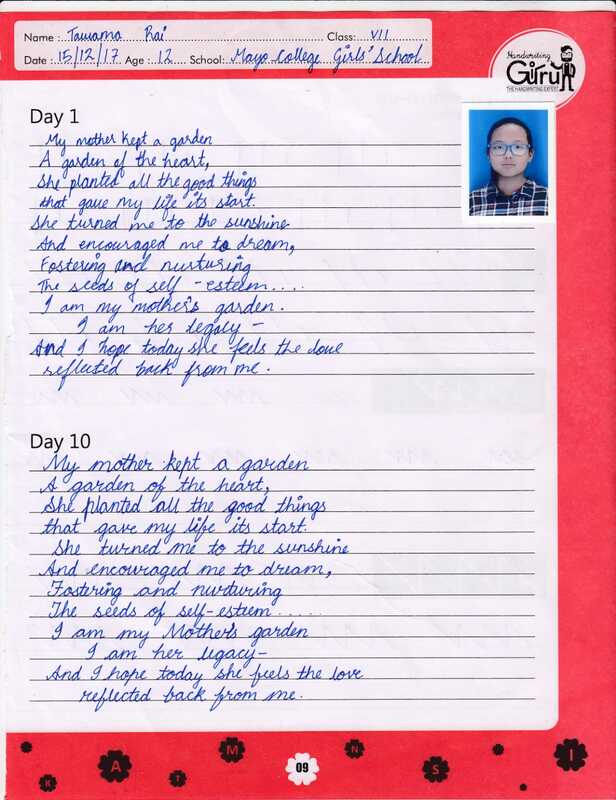 Name : Tawama Rai Class: VII
Date : 15/12/17 Age : 12 School: Mayo College Girls' School
Handwriting
Guru
THE HANDWRITING EXPERT
Day 1
My mother kept a garden
A garden of the heart,
She planted all the good things
that gave my life its start.
She turned me to the sunshine
And encouraged me to dream,
Fostering and nurturing
The seeds of self - esteem....
I am my mother's garden.
I am her legacy -
And I hope today she feels the love
reflected back from me.
Day 10
My mother kept a garden
A garden of the heart,
She planted all the good things
that gave my life its start.
She turned me to the sunshine
And encouraged me to dream,
Fostering and nurturing
The seeds of self-esteem.....
I am my Mother's garden
I am her legacy-
And I hope today she feels the love
reflected back from me.
K A T M 09 N S I